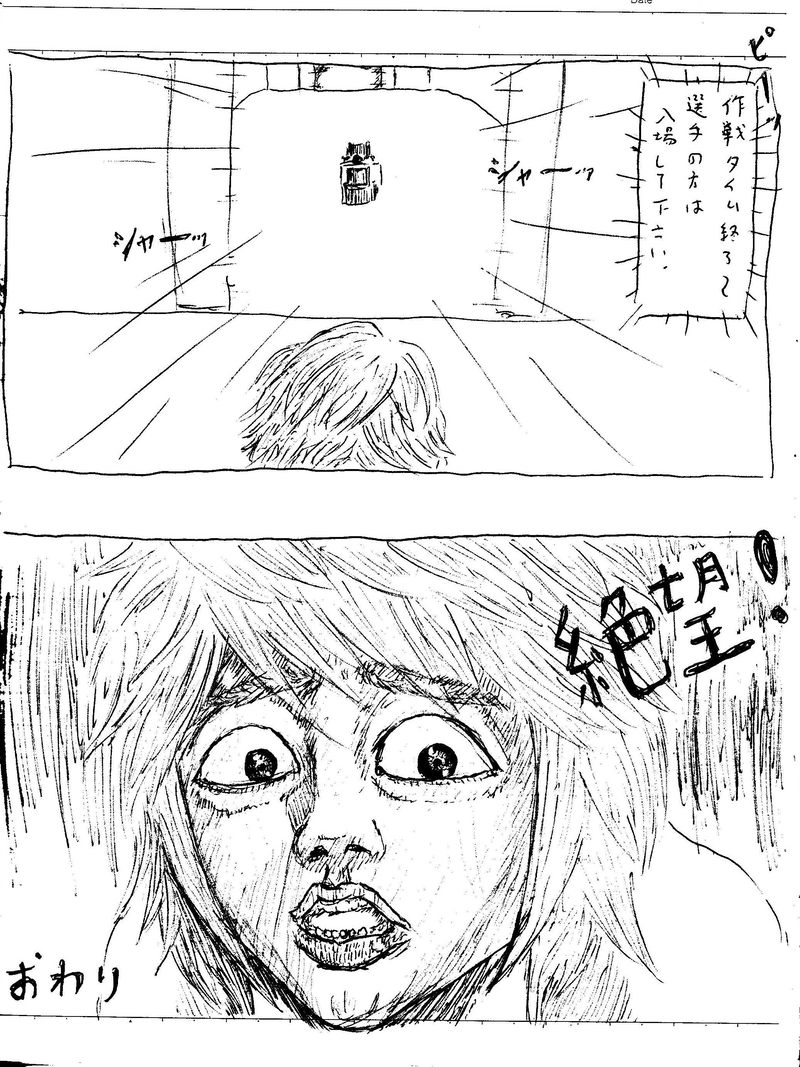 Date
ピーッ
作戦タイム終了〜
選手の方は
入場して下さい.
ジャーッ
ジャーッ
絶望!
おわり